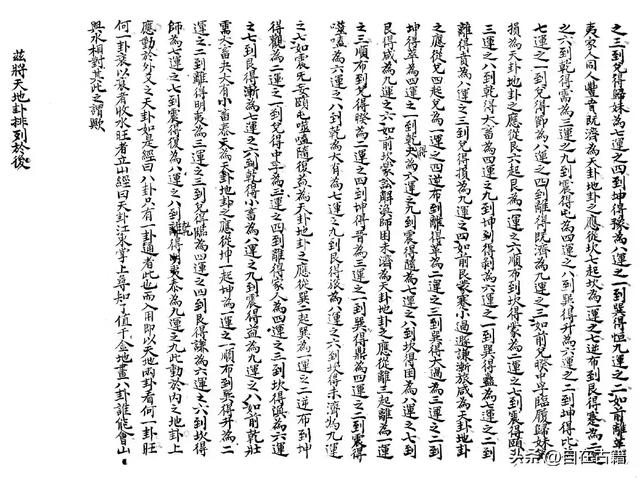 之三到兌得歸妹為七運之四到坤得豫為八運之一到巽得恒九運之二如前離革
夷家人同人豐賁既濟為天卦地卦之應從坎七起坎為一運之七逆布到艮得蹇為二運
之六到乾得需為三運之九到震得屯為四運之八到巽得升為六運之二到坤得比
七運之一到兌得節為八運之四到離得既濟為九運之三如前兌睽中孚臨履歸妹節
損為天卦地卦之應從艮六起艮為一運之六順布到坎得蒙為二運之七到震得頤
三運之八到乾得大畜為四運之九到坤得剥為六運之一到巽得蠱為七運之二到
離得賁為八運之三到兌得損為九運之四如前艮蒙蹇小過遯謙漸旅咸為天卦地卦
之應從兌四起兌為一運之四逆布到離得革為二運之三到巽得大過為三運之二到
坤得萃為四運之一到乾得夬為六運之九到震得隨為七運之八到坎得困為八運之七到
艮得咸為九運之六如前坎蒙訟解渙師困未濟為天卦地卦之應從離三起離為一運
之三順布到兌得睽為二運之四到坤得晋為三運之一到巽得鼎為四運之二到震得
噬嗑為六運之八到乾為大有為七運之九到艮得旅為八運之六到坎得未濟為九運
之七如震无妄頤屯噬嗑隨復益為天卦地卦之應從巽二起巽為一運之二逆布到坤
得觀為二運之一到兌得中孚為三運之四到離得家人為四運之三到坎得渙為六運
之七到艮得漸為七運之六到乾得小畜為八運之九到震得益為九運之八如前乾壯
需大畜夬大有小畜泰天為天卦地卦之應從坤一起坤為一運之一順布到巽得升為二
運之二到離得明夷為三運之三到兌得臨為四運之四到艮得謙為六運之六到坎得
師為七運之七到震得復為八運之八到得明夷泰為九運之九此動於內之地卦上
應動於外爻之天卦如是經曰八卦只有一卦通者此也而入用即以天地兩卦看何一卦旺
何一卦衰以衰者收水旺者立山經曰天卦江東掌上尋知了值千金地畫八卦誰能會山
與水相對其此之謂歟
茲將天地卦排列於後
头条 @自在古籍